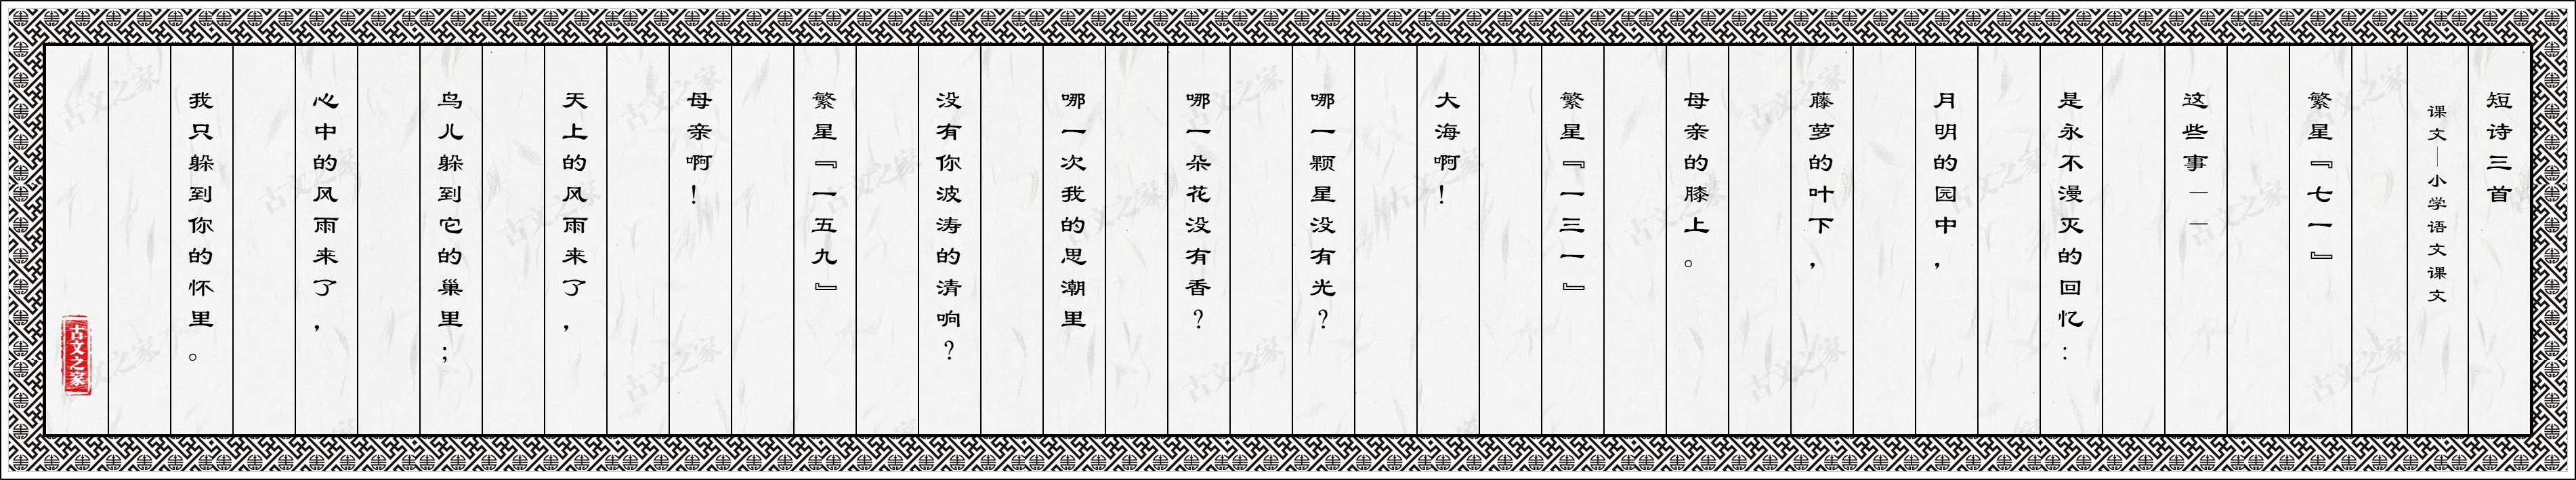 短诗三首
课文—小学语文课文
繁星『七一』
这些事——
是永不漫灭的回忆：
月明的园中，
藤萝的叶下，
母亲的膝上。
繁星『一三一』
大海啊！
哪一颗星没有光？
哪一朵花没有香？
哪一次我的思潮里
没有你波涛的清响？
繁星『一五九』
母亲啊！
天上的风雨来了，
鸟儿躲到它的巢里；
心中的风雨来了，
我只躲到你的怀里。
古文之家